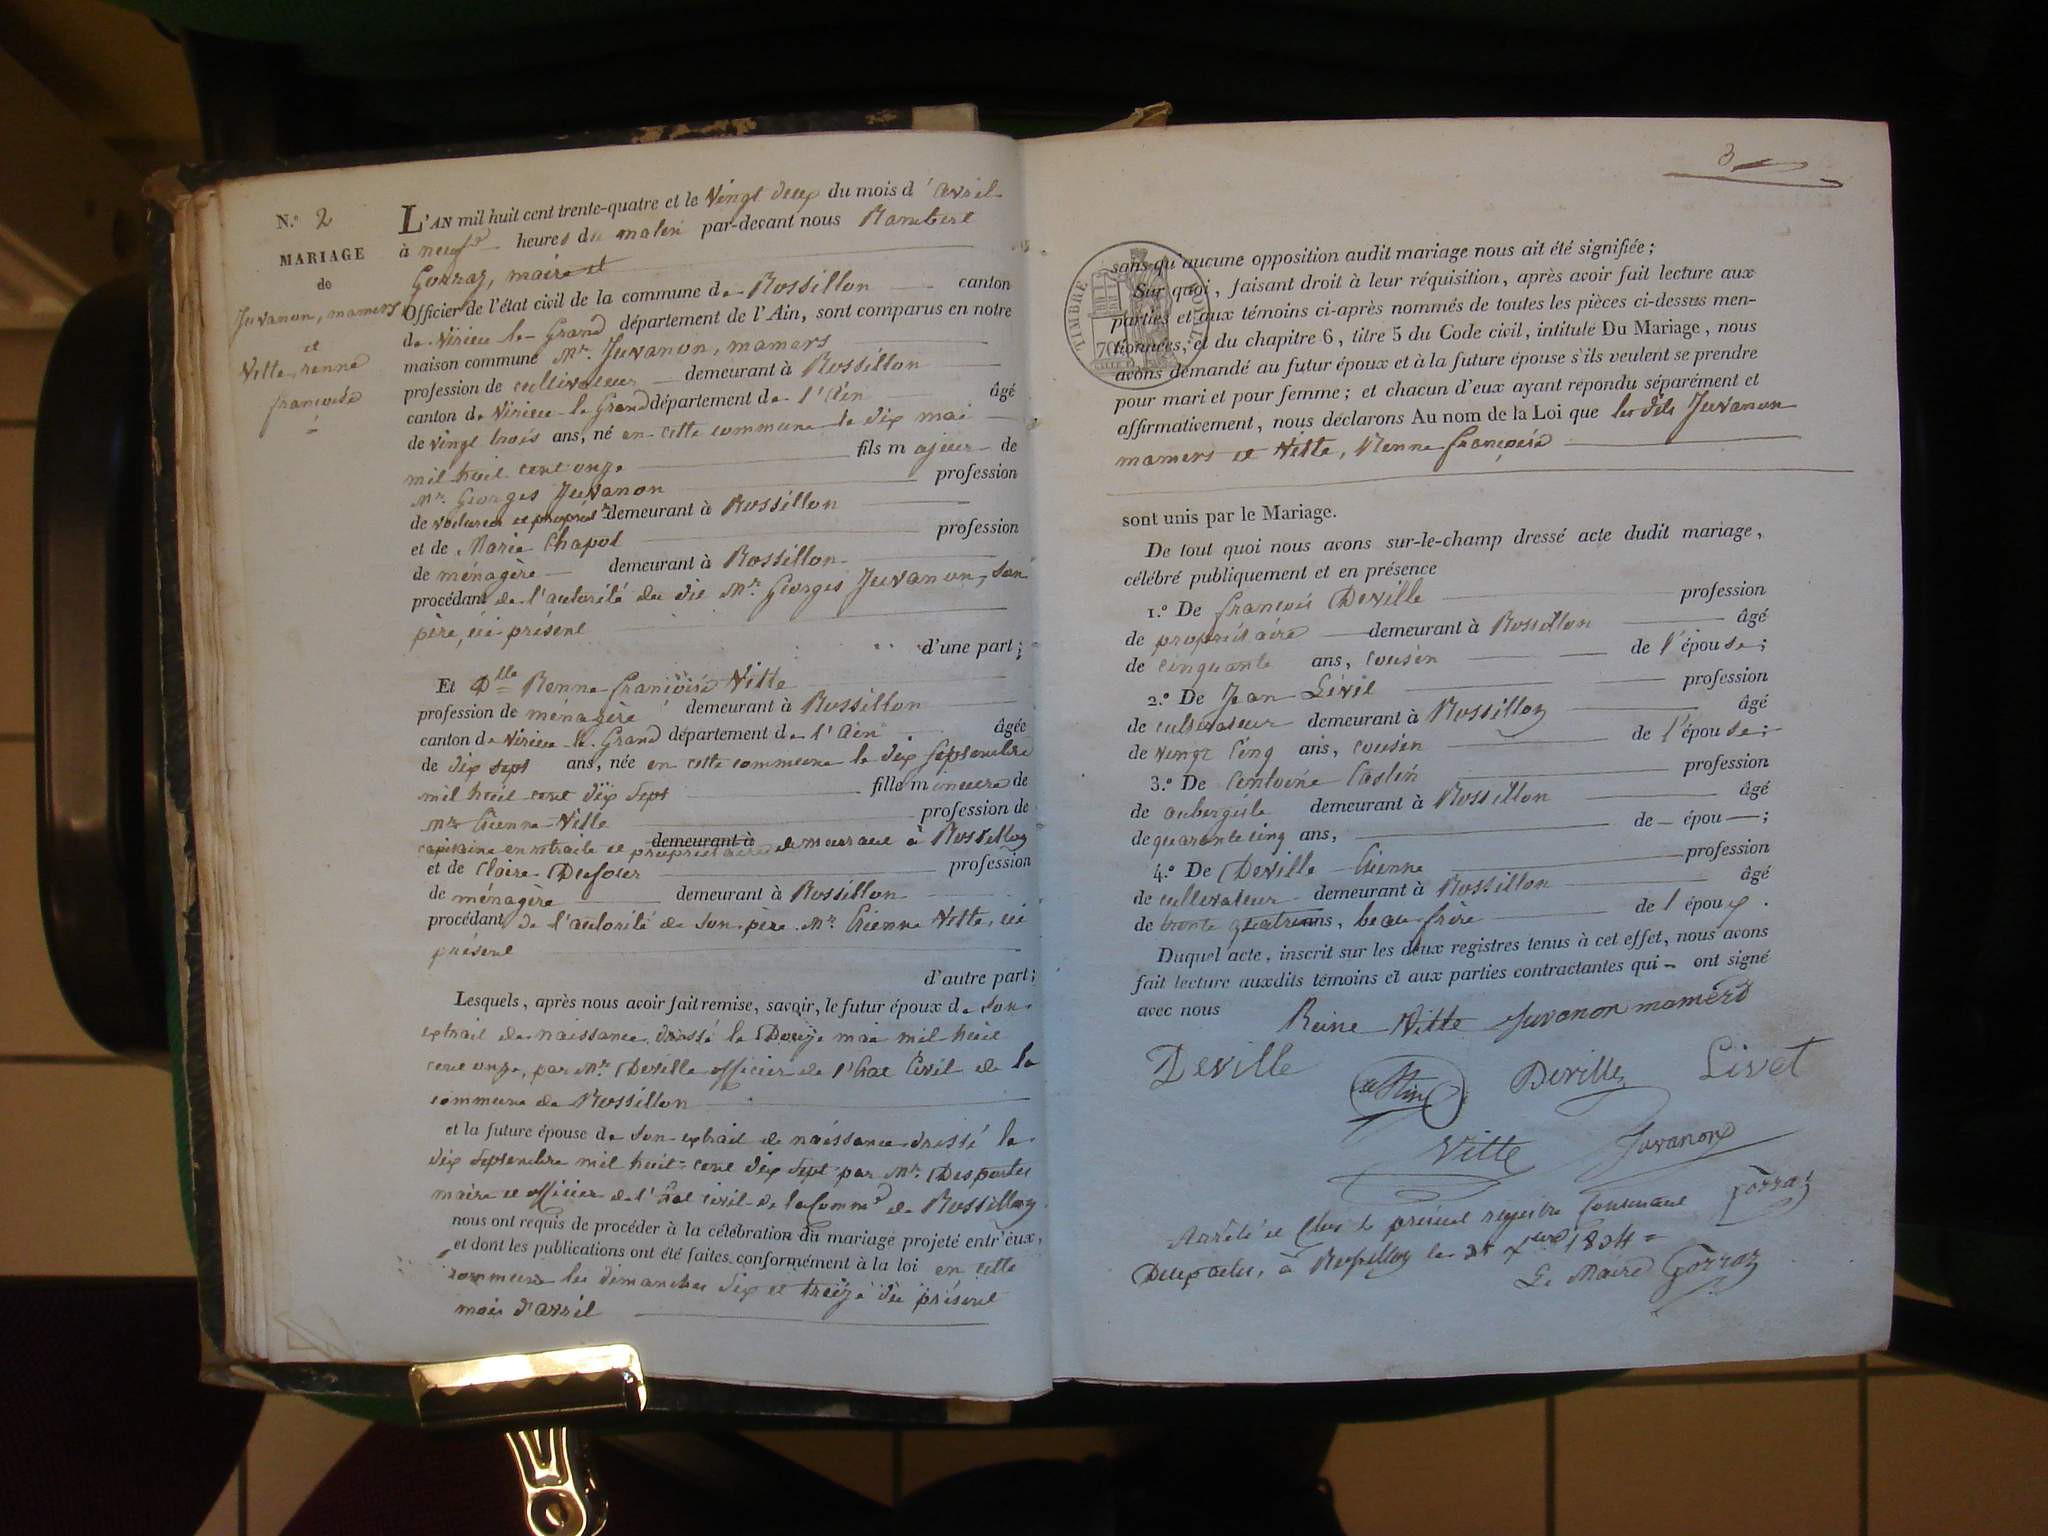 N.º 2
MARIAGE
de
Juvanon, mamers
et
Vitte, renne
françoise
L'AN mil huit cent trente-quatre et le vingt deux du mois d'avril
à neuf heures du matin par-devant nous Rambert
Gorraz, maire et
Officier de l'état civil de la commune de Rossillon canton
de Virieu le Grand département de l'Ain, sont comparus en notre
maison commune Mr. Juvanon, mamers
profession de cultivateur demeurant à Rossillon
canton de Virieu le Grand département de l'Ain âgé
de vingt trois ans, né en cette commune le dix mai
mil huit cent onze fils majeur de
Mr. Georges Juvanon profession
de voiturier et propriét.re demeurant à Rossillon
et de Marie Chapot profession
de ménagère demeurant à Rossillon
procédant de l'autorité du dit Mr. Georges Juvanon, son
père, ici présent
d'une part;
Et Dlle Renne Françoise Vitte
profession de ménagère demeurant à Rossillon
canton de Virieu le Grand département de l'Ain âgée
de dix sept ans, née en cette commune le dix septembre
mil huit cent dix sept fille mineure de
Mr Etienne Vitte profession de
capitaine en retraite et propriétaire demeurant à demeurant à Rossillon
et de Claire Dufour profession
de ménagère demeurant à Rossillon
procédant de l'autorité de son père Mr. Etienne Vitte, ici
présent
d'autre part;
Lesquels, après nous avoir fait remise, savoir, le futur époux de son
extrait de naissance dressé le Douze mai mil huit
cent onze, par Mr. Deville officier de l'Etat Civil de la
commune de Rossillon
et la future épouse de son extrait de naissance dressé le
dix septembre mil huit cent dix sept par Mr. Desportes
maire et officier de l'Etat civil de la Comm.e de Rossillon
nous ont requis de procéder à la célébration du mariage projeté entr'eux,
et dont les publications ont été faites conformément à la loi en cette
commune les dimanches dix et treize du présent
mois d'avril
3
TIMBRE ROYAL
70
sans qu'aucune opposition audit mariage nous ait été signifiée;
Sur quoi, faisant droit à leur réquisition, après avoir fait lecture aux
parties et aux témoins ci-après nommés de toutes les pièces ci-dessus men-
tionnées, et du chapitre 6, titre 5 du Code civil, intitulé Du Mariage, nous
avons demandé au futur époux et à la future épouse s'ils veulent se prendre
pour mari et pour femme; et chacun d'eux ayant répondu séparément et
affirmativement, nous déclarons Au nom de la Loi que les dits Juvanon
mamers et Vitte, Renne françoise
sont unis par le Mariage.
De tout quoi nous avons sur-le-champ dressé acte dudit mariage,
célébré publiquement et en présence
1.º De François Deville profession
de propriétaire demeurant à Rossillon âgé
de cinquante ans, cousin de l'épouse;
2.º De Jean Livet profession
de cultivateur demeurant à Rossillon âgé
de vingt cinq ans, cousin de l'épouse;
3.º De Antoine Castin profession
de aubergiste demeurant à Rossillon âgé
de quarante cinq ans, de épou ;
4.º De Deville Etienne profession
de cultivateur demeurant à Rossillon âgé
de trente quatre ans, beau frère de l'époux.
Duquel acte, inscrit sur les deux registres tenus à cet effet, nous avons
fait lecture auxdits témoins et aux parties contractantes qui ont signé
avec nous Reine Vitte Juvanon mamers
Deville Deville Livet
Vitte Juvanon
Gorraz
Arrêté et Clos le présent registre Contenant
Deux actes, à Rossillon le 31 Xbre 1834
Le Maire Gorraz